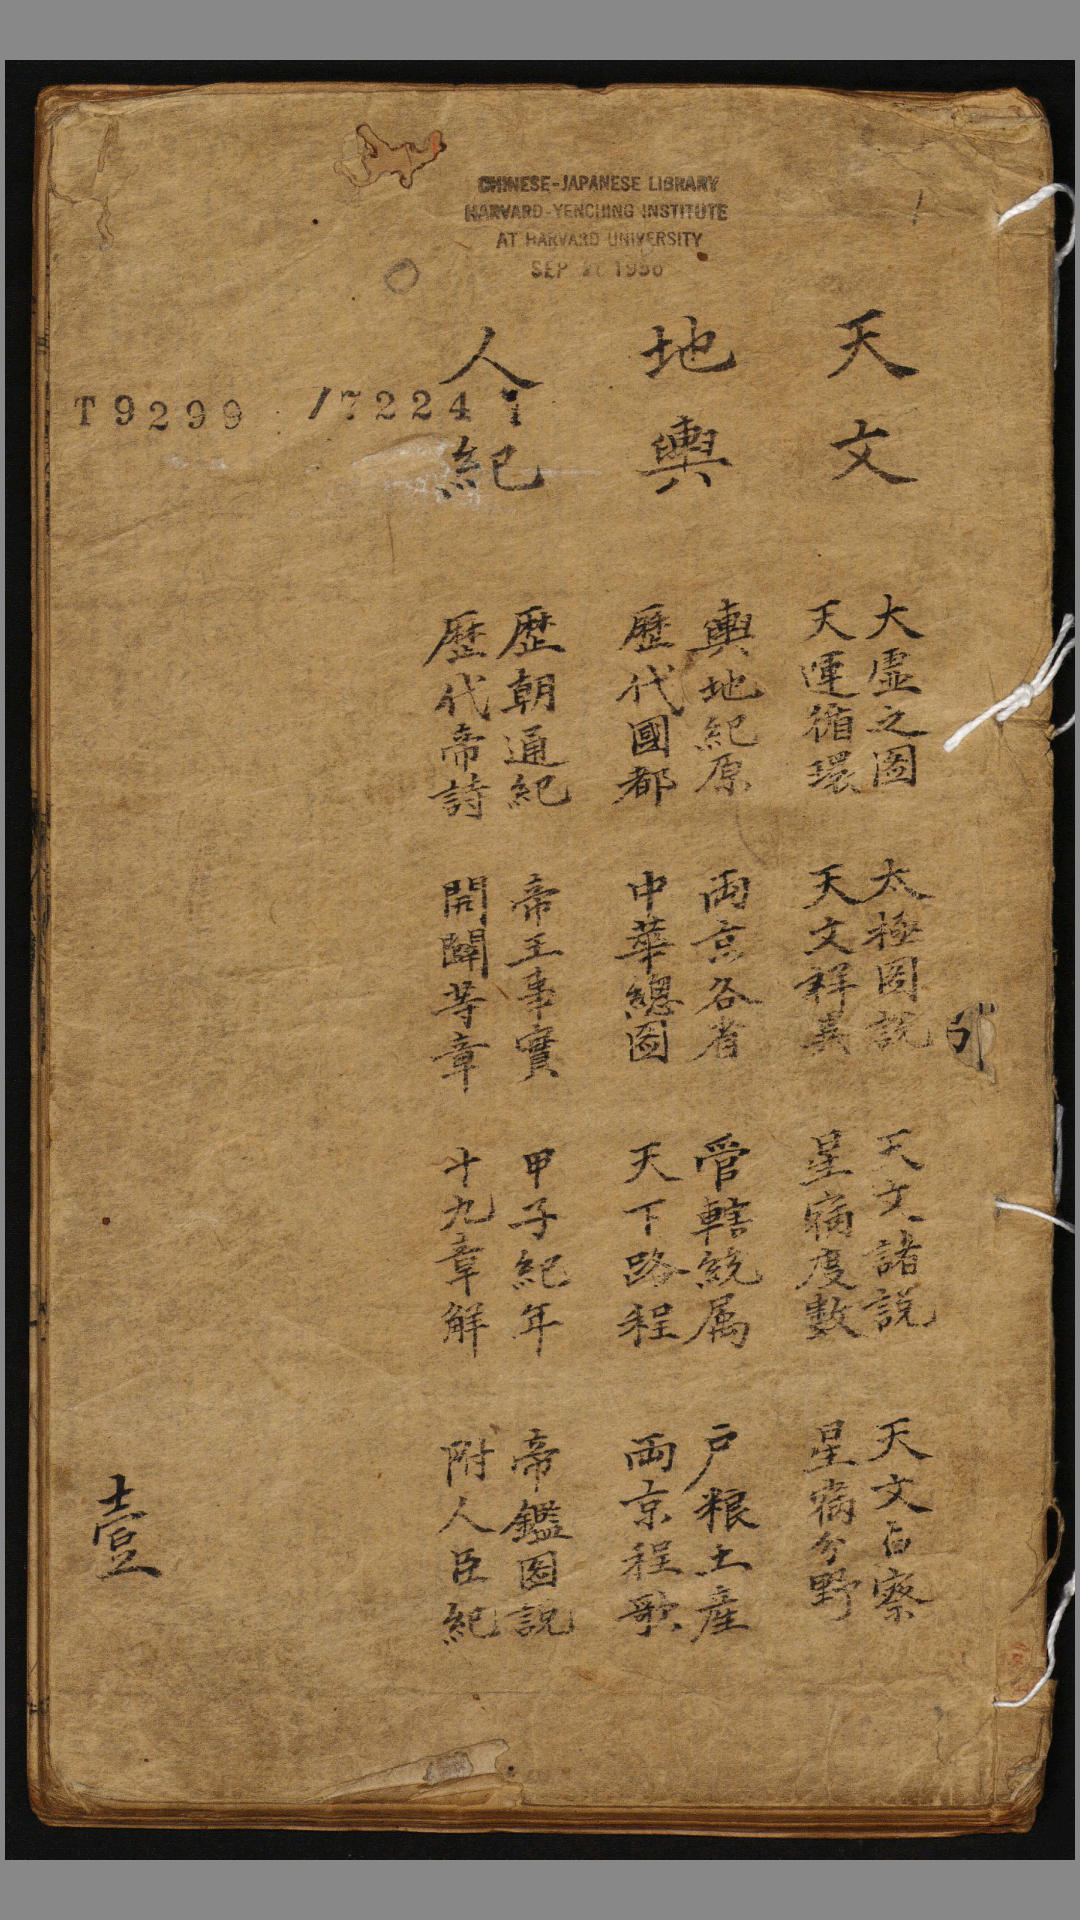 CHINESE-JAPANESE LIBRARY
HARVARD-YENCHING INSTITUTE
AT HARVARD UNIVERSITY
SEP 1956
T9299 17224.1
天文
大虛之圖 太極圖說 天文諸說 天文占察
天運循環 天文祥異 星病度數 星病分野
地輿
輿地紀原 両京各省 管轄統属 户粮土產
歷代國都 中華總圖 天下路程 両京程歌
人紀
歷朝通紀 帝王事實 甲子紀年 帝鑑図說
歷代帝詩 開闢等章 十九章解 附人臣紀
壹